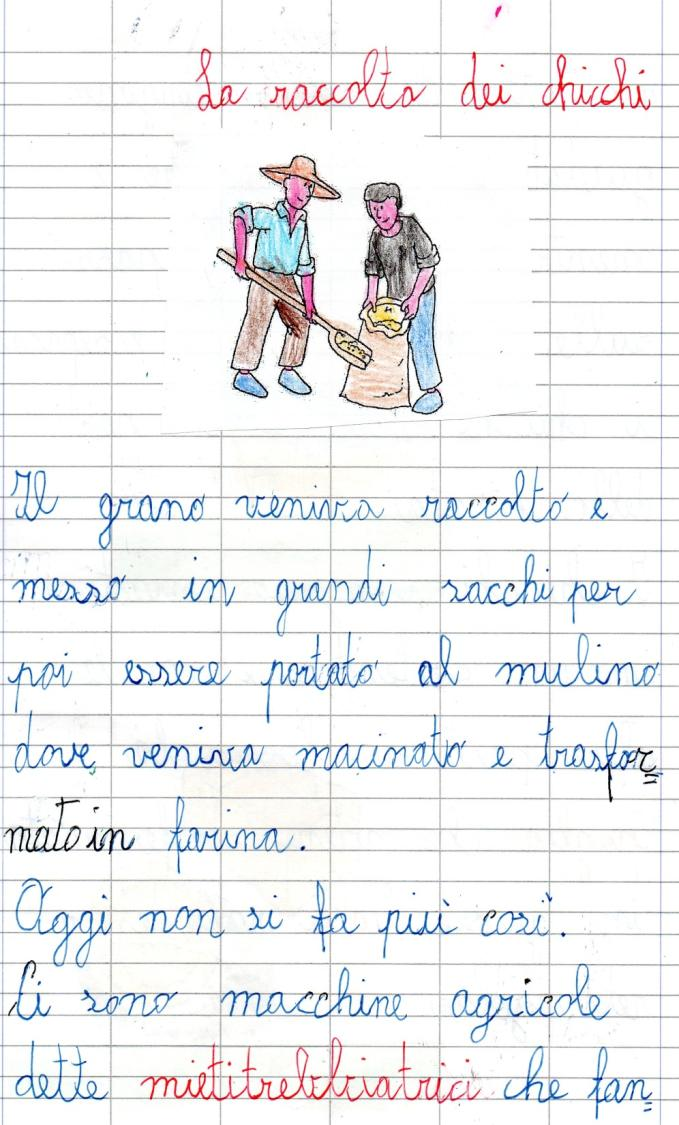 La raccolta dei chicchi
Il grano veniva raccolto e
messo in grandi sacchi per
poi essere portato al mulino
dove veniva macinato e trasfor=
mato in farina.
Oggi non si fa più così.
Ci sono macchine agricole
dette mietitrebbiatrici che fan=